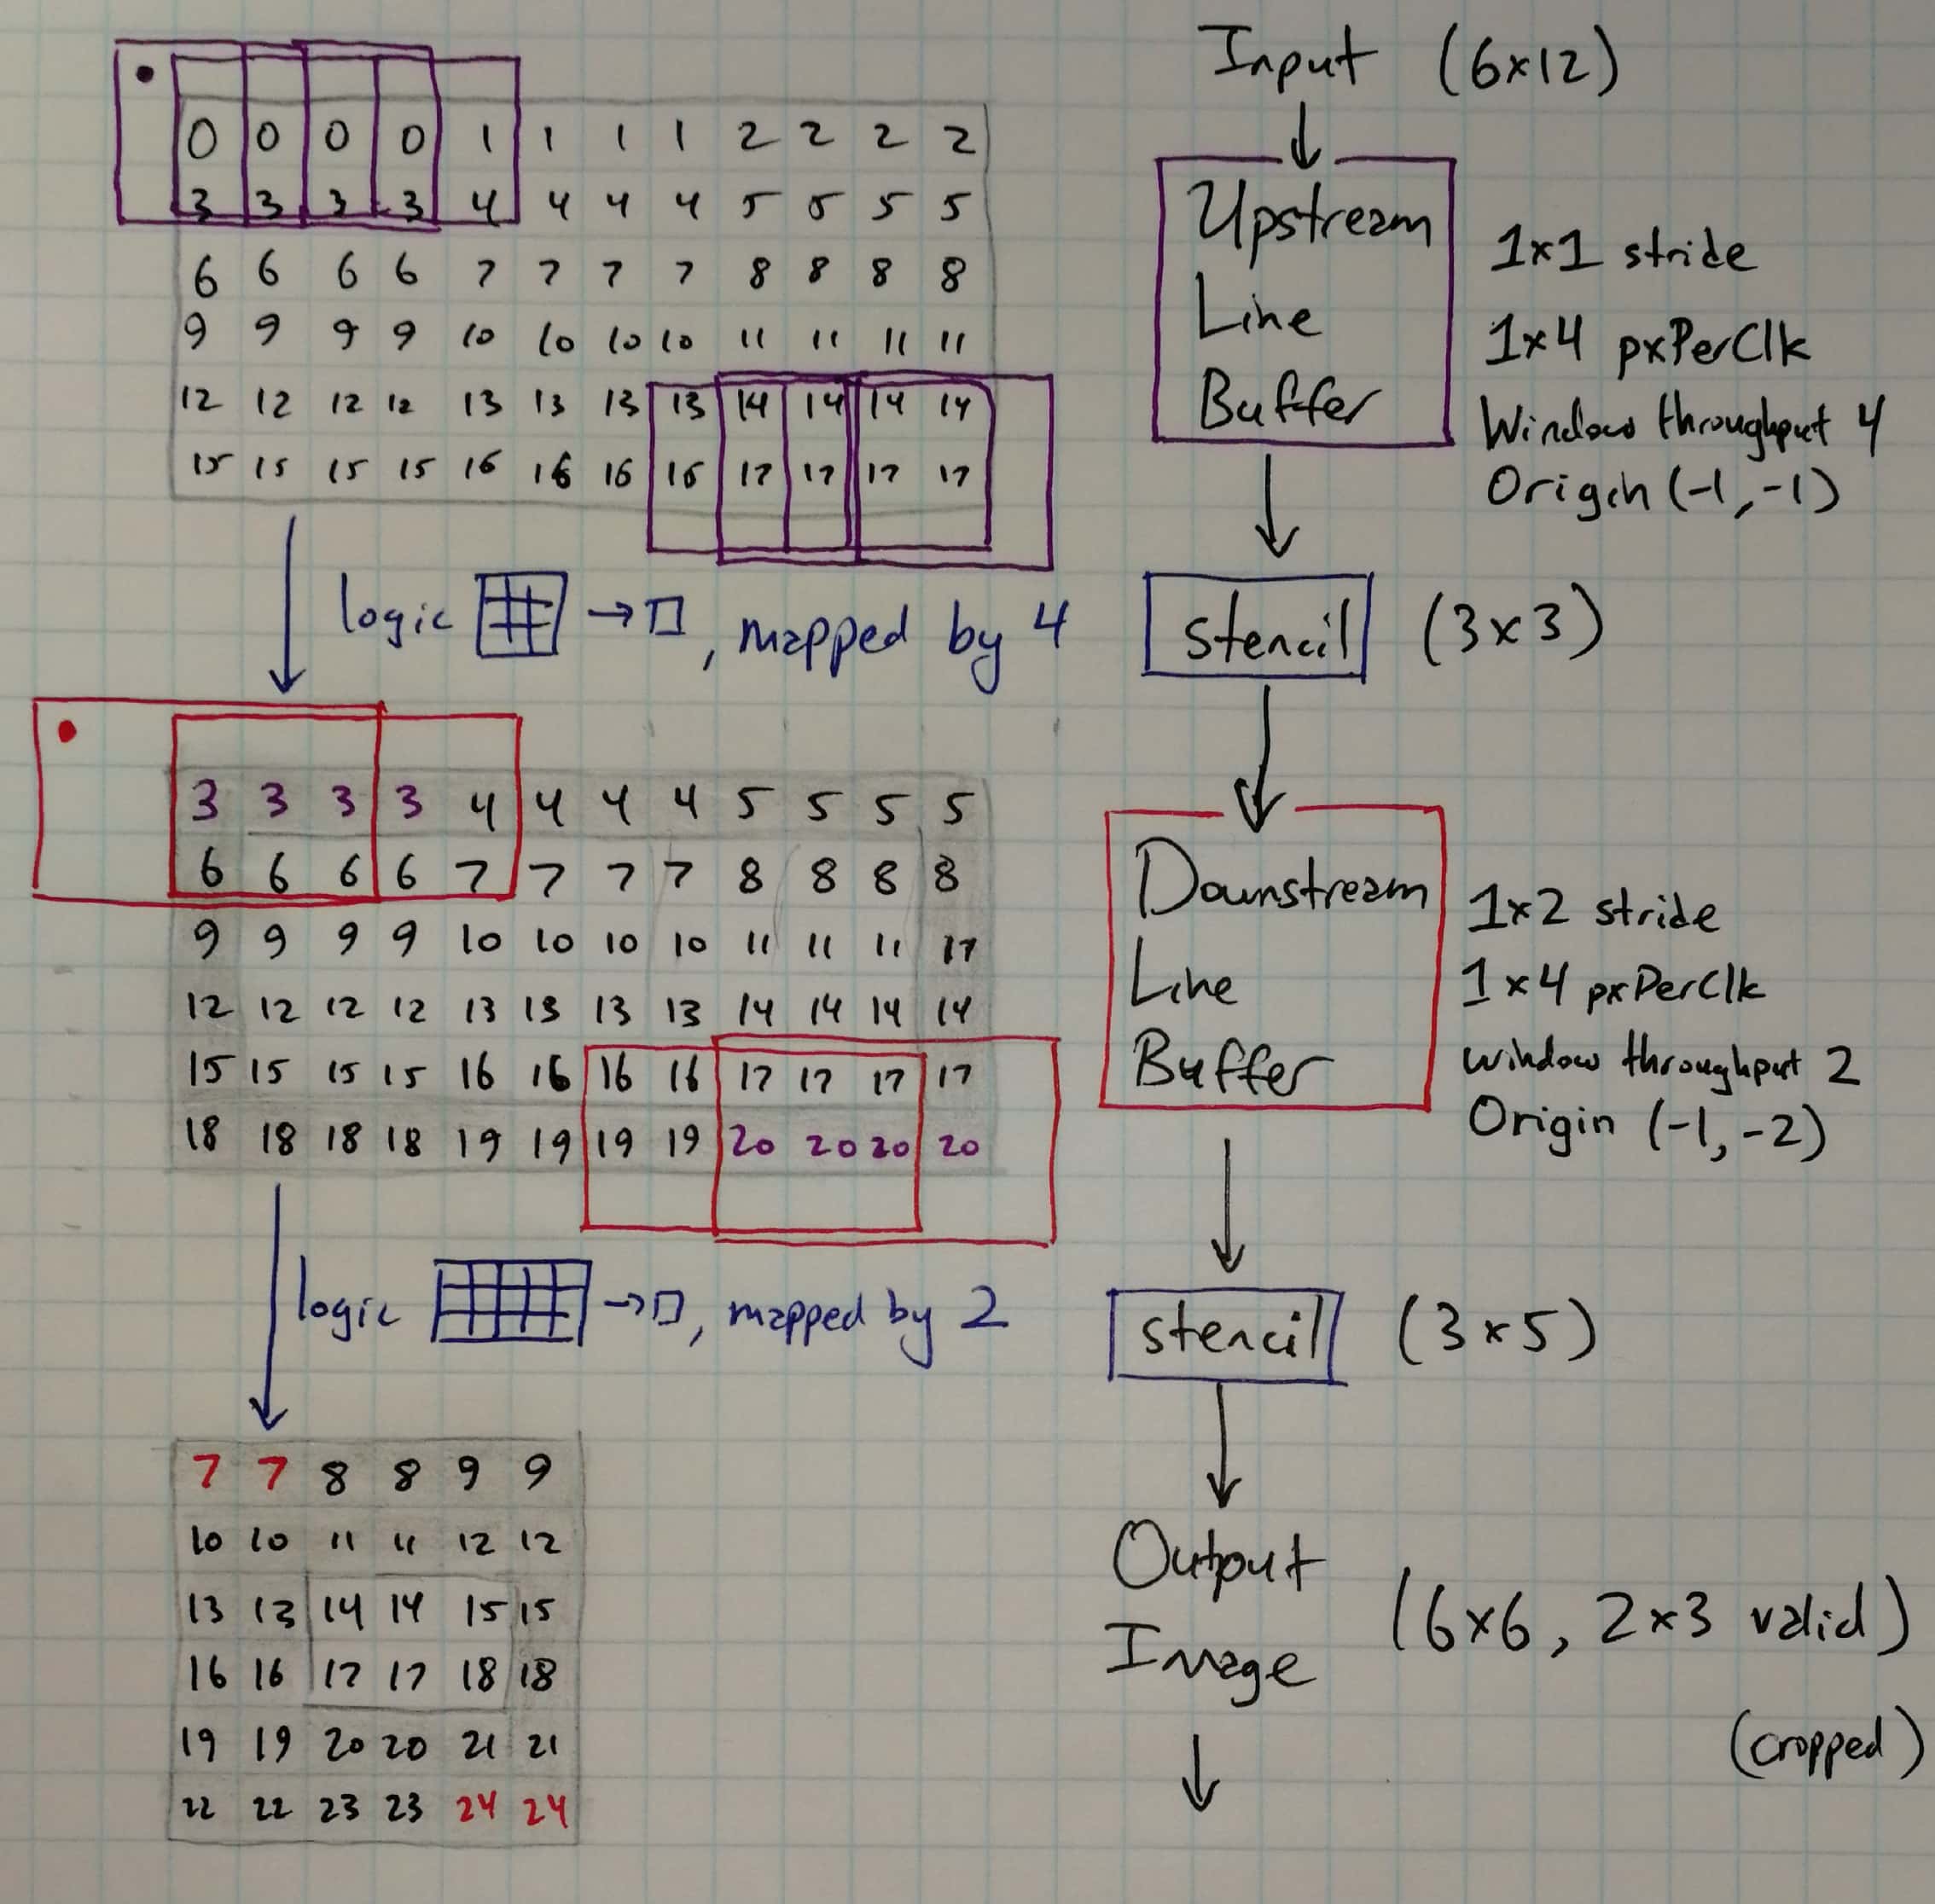 0 0 0 0 1 1 1 1 2 2 2 2
3 3 3 3 4 4 4 4 5 5 5 5
6 6 6 6 7 7 7 7 8 8 8 8
9 9 9 9 10 10 10 10 11 11 11 11
12 12 12 12 13 13 13 13 14 14 14 14
15 15 15 15 16 16 16 16 17 17 17 17
logic → , mapped by 4
3 3 3 3 4 4 4 4 5 5 5 5
6 6 6 6 7 7 7 7 8 8 8 8
9 9 9 9 10 10 10 10 11 11 11 17
12 12 12 12 13 13 13 13 14 14 14 14
15 15 15 15 16 16 16 16 17 17 17 17
18 18 18 18 19 19 19 19 20 20 20 20
logic → , mapped by 2
7 7 8 8 9 9
10 10 11 11 12 12
13 13 14 14 15 15
16 16 17 17 18 18
19 19 20 20 21 21
22 22 23 23 24 24
Input (6x12)
Upstream
Line
Buffer
1x1 stride
1x4 pxPerClk
Window throughput 4
Origin (-1,-1)
stencil (3x3)
Downstream
Line
Buffer
1x2 stride
1x4 pxPerClk
window throughput 2
Origin (-1,-2)
stencil (3x5)
Output
Image
(6x6, 2x3 valid)
(cropped)